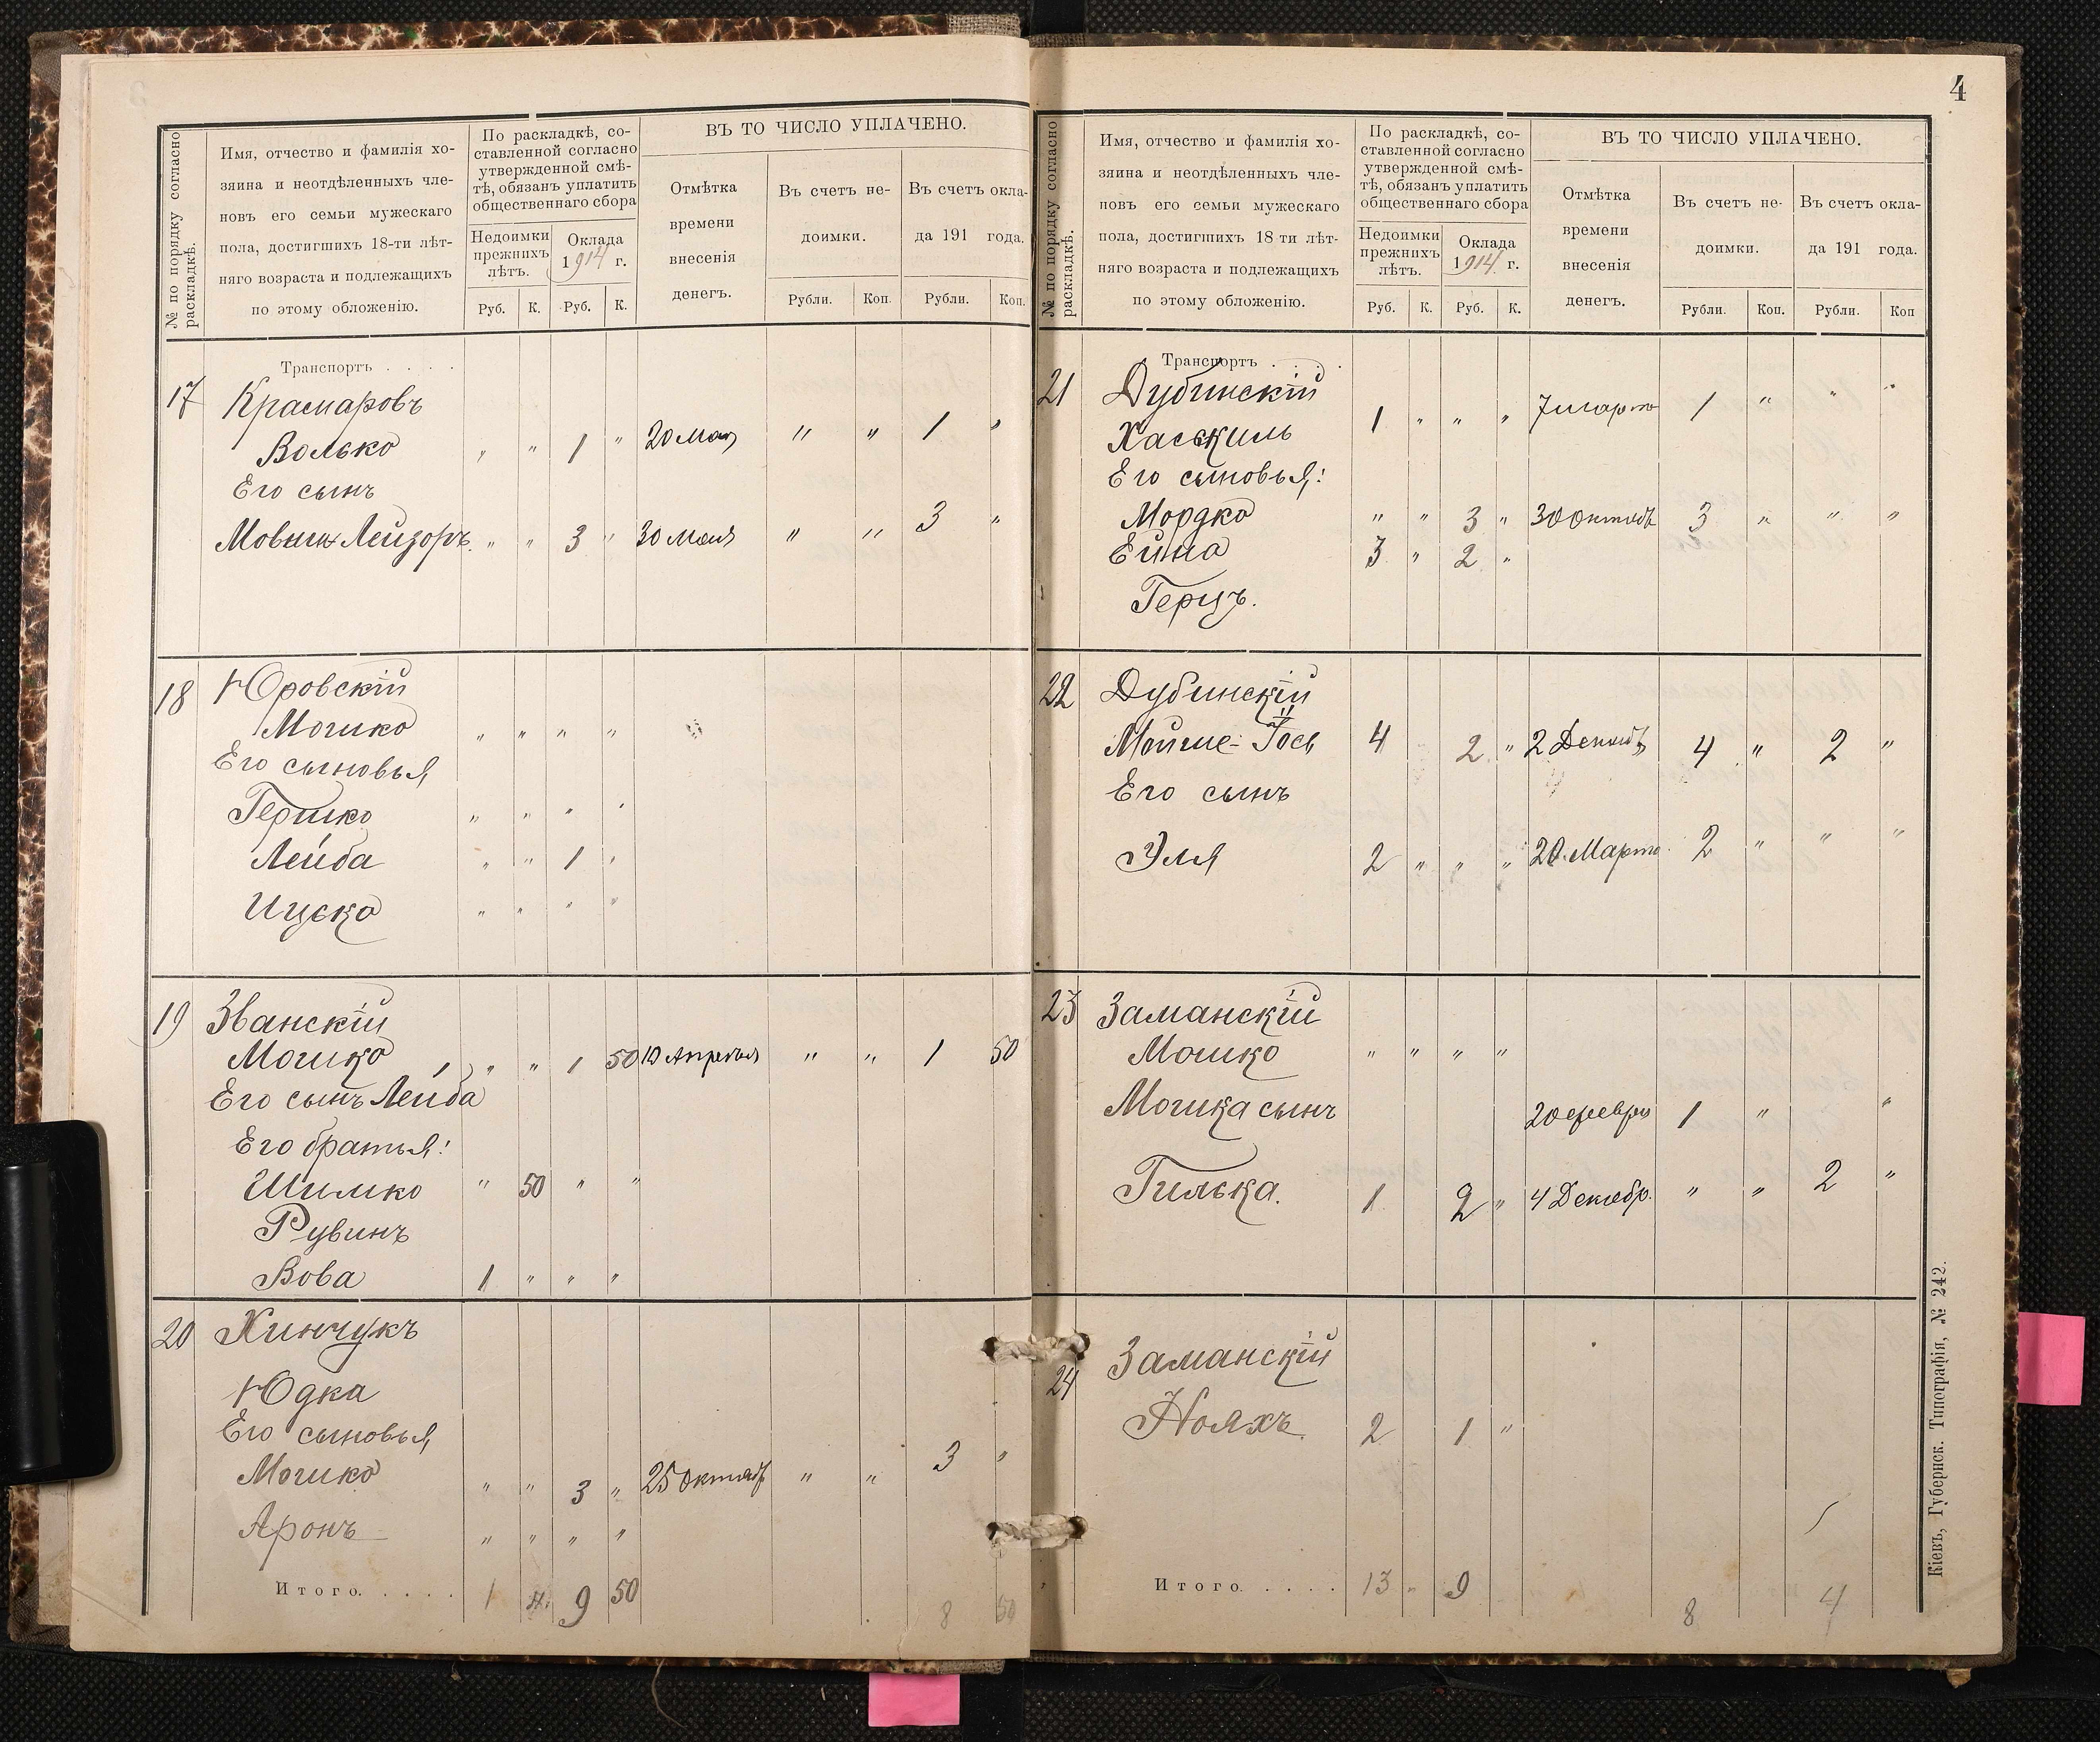 № по порядку согласно раскладкѣ.
Имя, отчество и фамилія хо-
зяина и неотдѣленныхъ чле-
новъ его семьи мужескаго
пола, достигшихъ 18-ти лѣт-
няго возраста и подлежащихъ
по этому обложенію.
По раскладкѣ, со-
ставленной согласно
утвержденной смѣ-
тѣ, обязанъ уплатить
общественнаго сбора
Недоимки
прежнихъ
лѣтъ.
Оклада
1914 г.
Руб. К. Руб. К.
ВЪ ТО ЧИСЛО УПЛАЧЕНО.
Отмѣтка
времени
внесенія
денегъ.
Въ счетъ не-
доимки.
Въ счетъ окла-
да 191 года.
Рубли. Коп. Рубли. Коп.
Транспортъ . . . .
17 Крамаровъ
Волько " " 1 " 20 Мая " " 1 "
Его сынъ
Мовша Лейзоръ " " 3 " 30 Мая " " 3 "
18 Юровскій
Мошко " " " "
Его сыновья
Гершко " " " "
Лейба " " 1 "
Ицско " " " "
19 Званскій
Мошко " " 1 50 10 Апреля " " 1 50
Его сынъ Лейба
Его братья:
Шимко " 50 " "
Рувинъ
Вова 1 " " "
20 Хинчукъ
Юдка
Его сыновья
Мошко " " 3 " 25 Октяб " " 3 "
Аронъ " " " "
Итого. . . . . 1 9 50 8 50
4
№ по порядку согласно раскладкѣ.
Имя, отчество и фамилія хо-
зяина и неотдѣленныхъ чле-
новъ его семьи мужескаго
пола, достигшихъ 18 ти лѣт-
няго возраста и подлежащихъ
по этому обложенію.
По раскладкѣ, со-
ставленной согласно
утвержденной смѣ-
тѣ, обязанъ уплатить
общественнаго сбора
Недоимки
прежнихъ
лѣтъ.
Оклада
1914 г.
Руб. К. Руб. К.
ВЪ ТО ЧИСЛО УПЛАЧЕНО.
Отмѣтка
времени
внесенія
денегъ.
Въ счетъ не-
доимки.
Въ счетъ окла-
да 191 года.
Рубли. Коп. Рубли. Коп
Транспортъ . . . .
21 Дубинскій
Хаськиль 1 " " " 7 марта 1 " " "
Его сыновья:
Мордко " " 3 " 30 Октяб 3 " " "
Ейна 3 " 2 "
Герцъ.
22 Дубинскій
Мойше-Іось 4 2 " 2 Декаб 4 " 2 "
Его сынъ
Эля 2 " " " 20 Марта 2 " " "
23 Заманскій
Мошко " " " "
Мошка сынъ 20 февра 1 " "
Гилька. 1 2 " 4 Декабр. " " 2 "
24 Заманскій
Нояхъ. 2 1 "
Итого. . . . . 13 " 9 8 4
Кіевъ, Губернск. Типографія, № 242.